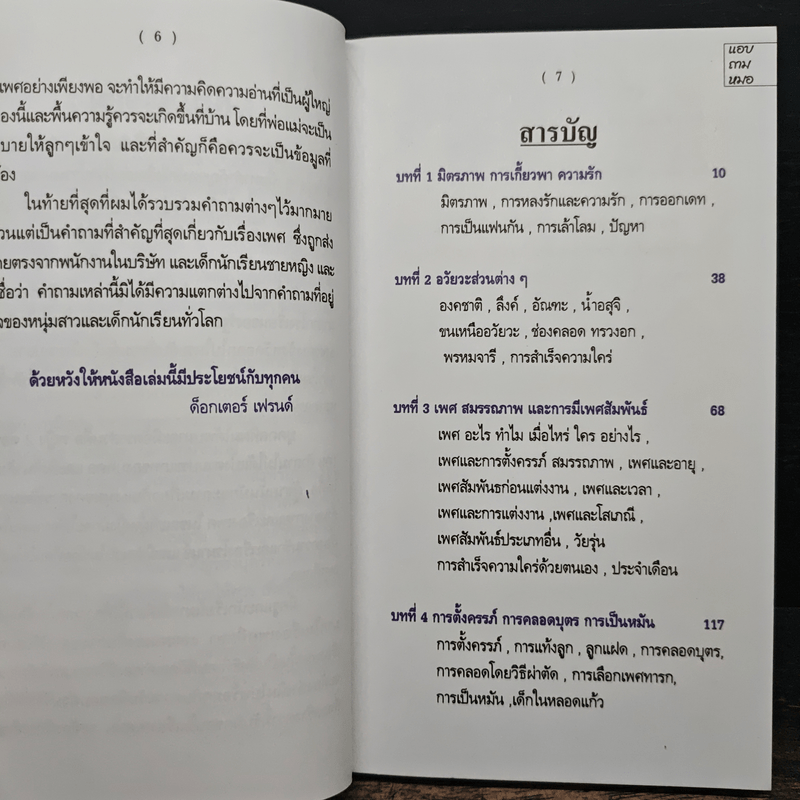 ( 6 )
เพศอย่างเพียงพอ จะทำให้มีความคิดความอ่านที่เป็นผู้ใหญ่
องนี้และพื้นความรู้ควรจะเกิดขึ้นที่บ้าน โดยที่พ่อแม่จะเป็น
บายให้ลูกๆเข้าใจ และที่สำคัญก็คือควรจะเป็นข้อมูลที่
ใอง
ในท้ายที่สุดที่ผมได้รวบรวมคำถามต่างๆไว้มากมาย
วนแต่เป็นคำถามที่สำคัญที่สุดเกี่ยวกับเรื่องเพศ ซึ่งถูกส่ง
ยตรงจากพนักงานในบริษัท และเด็กนักเรียนชายหญิง และ
ชื่อว่า คำถามเหล่านี้มิได้มีความแตกต่างไปจากคำถามที่อยู่
ของหนุ่มสาวและเด็กนักเรียนทั่วโลก
ด้วยหวังให้หนังสือเล่มนี้มีประโยชน์กับทุกคน
ด็อกเตอร์ เฟรนด์
แอบ
ถาม
หมอ
( 7 )
สารบัญ
บทที่ 1 มิตรภาพ การเกี้ยวพา ความรัก 10
มิตรภาพ , การหลงรักและความรัก , การออกเดท ,
การเป็นแฟนกัน , การเล้าโลม , ปัญหา
บทที่ 2 อวัยวะส่วนต่าง ๆ 38
องคชาติ , ลึงค์ , อัณฑะ , น้ำอสุจิ ,
ขนเหนืออวัยวะ , ช่องคลอด ทรวงอก ,
พรหมจารี , การสำเร็จความใคร่
บทที่ 3 เพศ สมรรถภาพ และการมีเพศสัมพันธ์ 68
เพศ อะไร ทำไม เมื่อไหร่ ใคร อย่างไร ,
เพศและการตั้งครรภ์ สมรรถภาพ , เพศและอายุ ,
เพศสัมพันธก่อนแต่งงาน , เพศและเวลา ,
เพศและการแต่งงาน ,เพศและโสเภณี ,
เพศสัมพันธ์ประเภทอื่น , วัยรุ่น
การสำเร็จความใคร่ด้วยตนเอง , ประจำเดือน
บทที่ 4 การตั้งครรภ์ การคลอดบุตร การเป็นหมัน 117
การตั้งครรภ์ , การแท้งลูก , ลูกแฝด , การคลอดบุตร,
การคลอดโดยวิธีผ่าตัด , การเลือกเพศทารก,
การเป็นหมัน ,เด็กในหลอดแก้ว